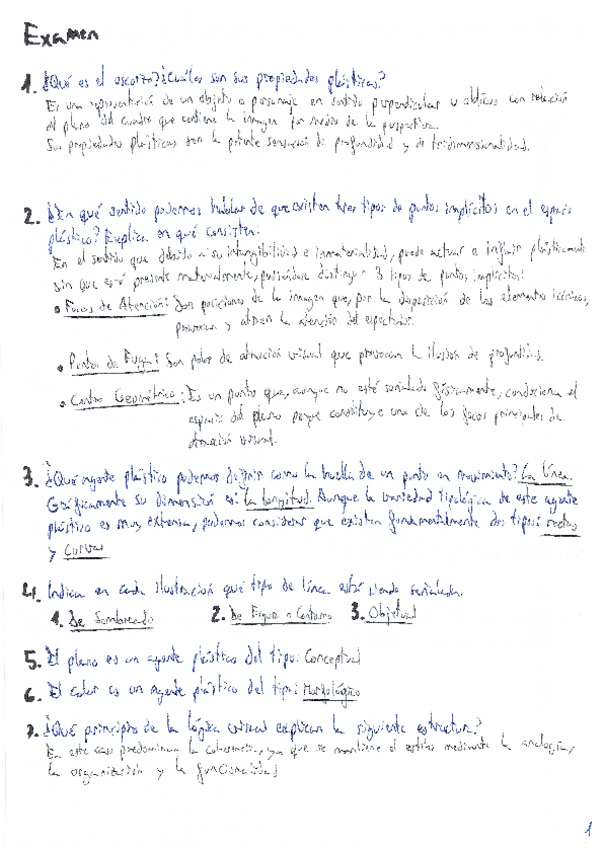 Examen
1. ¿Qué es el escorzo? ¿Cuáles son sus propiedades plásticas?
Es una representación de un objeto o personaje en sentido perpendicular u oblicuo con relación
al plano del cuadro que contiene la imagen por medio de la perspectiva.
Sus propiedades plásticas son la potente sensación de profundidad y de tridimensionalidad.
2. ¿En qué sentido podemos hablar de que existen tres tipos de puntos implícitos en el espacio
plástico? Explica en qué consisten:
En el sentido que debido a su intangibilidad e inmaterialidad, puede actuar e influir plásticamente
sin que esté presente materialmente, pudiéndose distinguir 3 tipos de puntos implícitos:
• Focos de Atención: Son posiciones de la imagen que, por la disposición de los elementos icónicos,
provocan y atraen la atención del espectador.
• Puntos de Fuga: Son polos de atracción visual que provocan la ilusión de profundidad.
• Centro Geométrico: Es un punto que, aunque no esté señalado físicamente, condiciona el
espacio del plano porque constituye uno de los focos principales de
atracción visual.
3. ¿Qué agente plástico podemos definir como la huella de un punto en movimiento? La línea.
Gráficamente su dimensión es: la longitud. Aunque la variedad tipológica de este agente
plástico es muy extensa, podemos considerar que existen fundamentalmente dos tipos: rectas
y curvas
4. Indica en cada ilustración qué tipo de línea está siendo señalada.
1. De Sombreado 2. De Figura o Contorno 3. Objetual
5. El plano es un agente plástico del tipo: Conceptual
6. El color es un agente plástico del tipo: Morfológico
7. ¿Qué principio de la lógica visual explican la siguiente estructura?
En este caso predominan la coherencia, ya que se mantiene el estilo mediante la analogía,
la organización y la funcionalidad
1